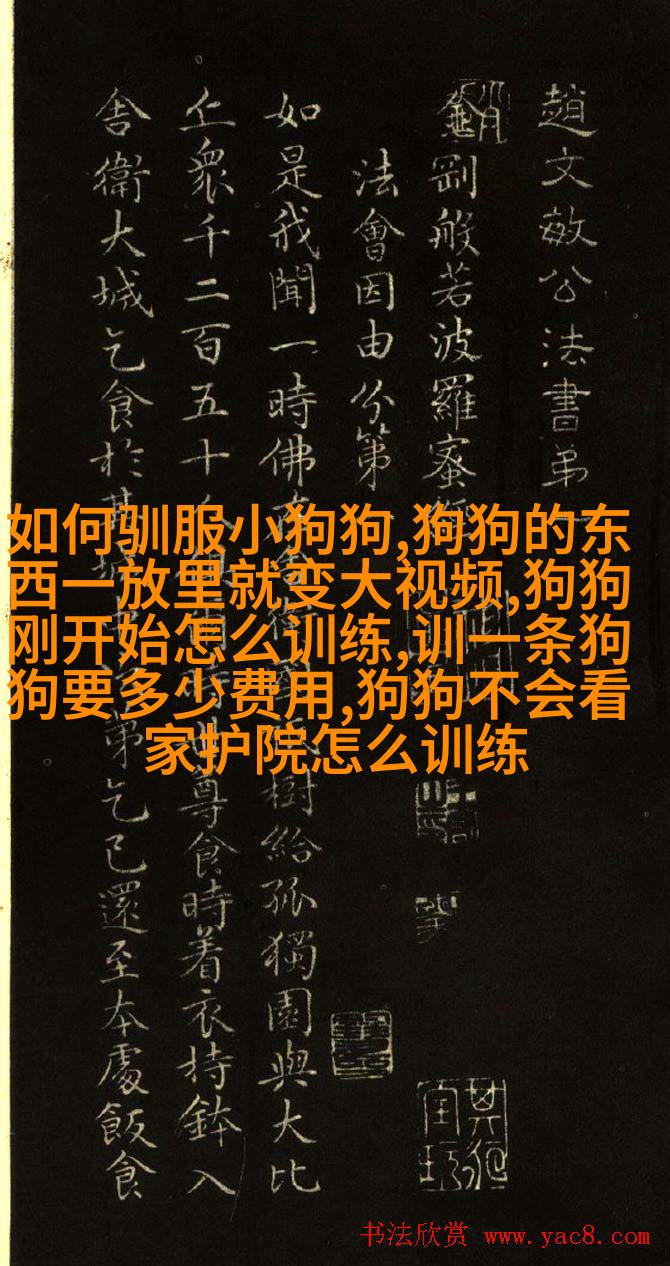 趙文敏公法書弟
金剛般若波羅蜜經
法會因由分第
如是我聞一時佛樹給孤獨園與大比
丘眾千二百五十人尊食時着衣持鉢入
舍衛大城乞食於其第乞已還至本處飯食
如何驯服小狗狗,狗狗的东
西一放里就变大视频,狗狗
刚开始怎么训练,训一条狗
狗要多少费用,狗狗不会看
家护院怎么训练
书法欣赏 www.yac8.com